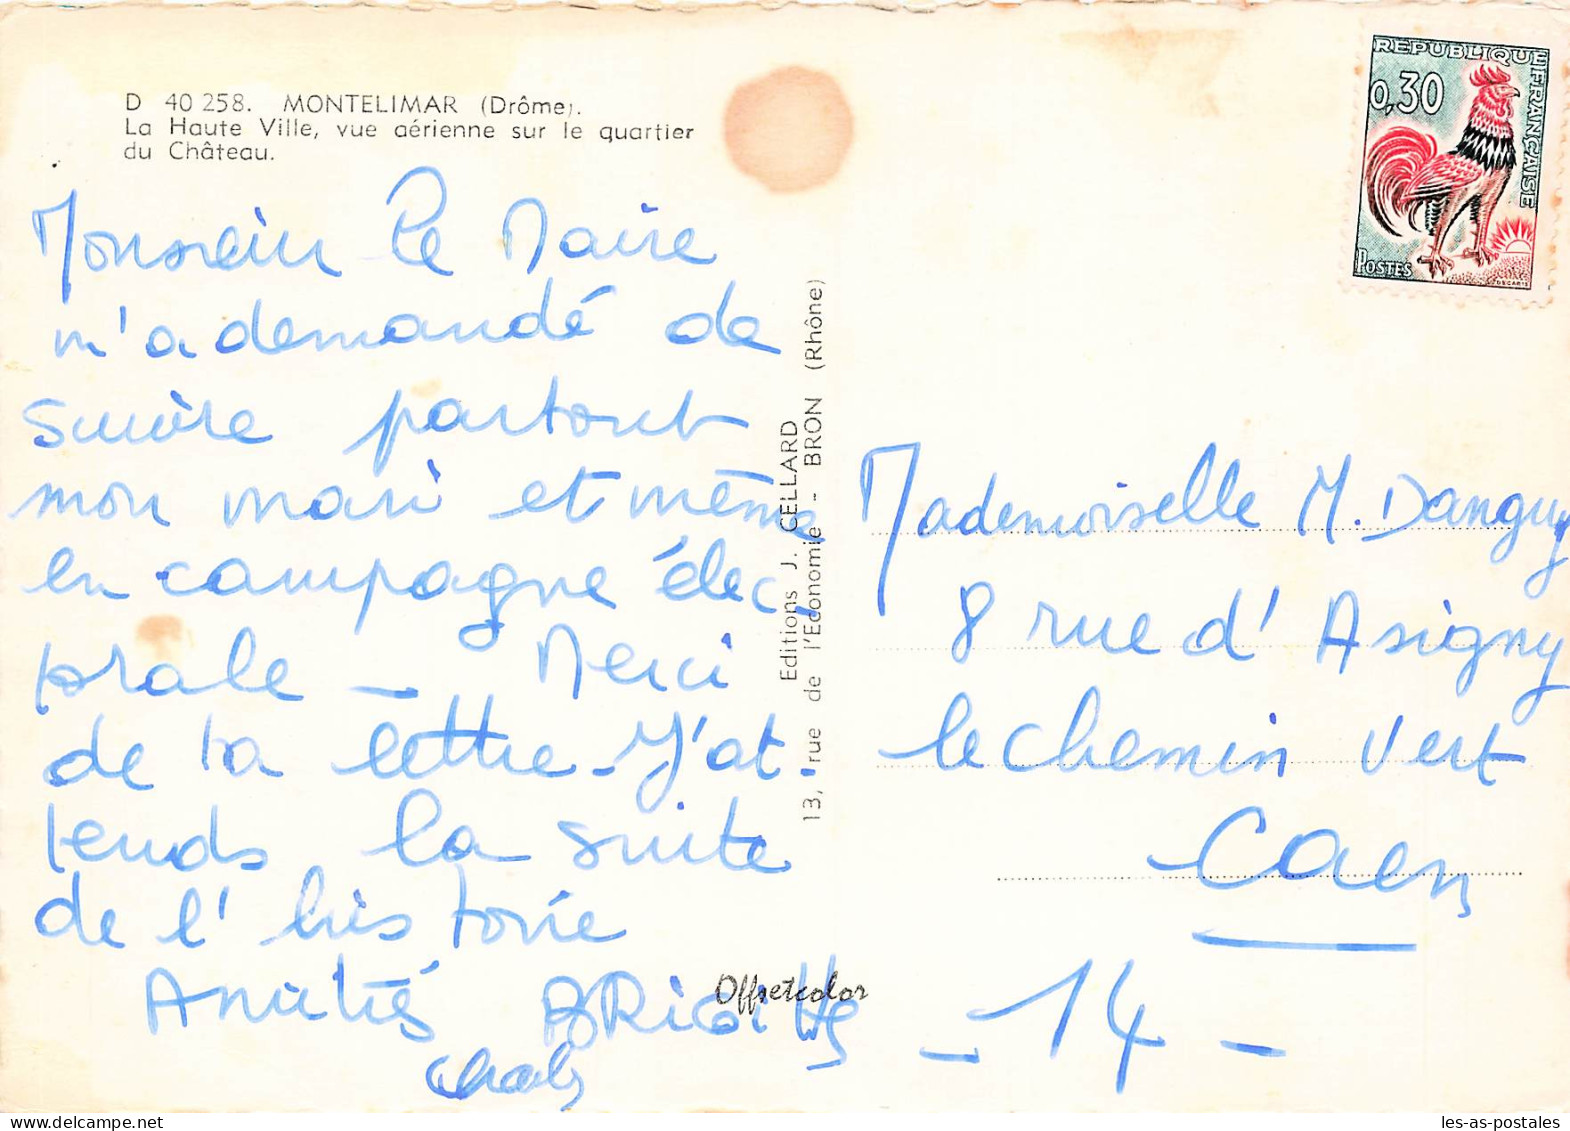 D 40 258. MONTELIMAR (Drôme).
La Haute Ville, vue aérienne sur le quartier
du Château.
Monsieur le Maire
m'a demandé de
suivre partout
mon mari et même
en campagne élec-
torale - Merci
de la lettre - J'at-
tends la suite
de l'histoire
Amitiés BRIGITTE
Editions J. CELLARD
13, rue de l'Economie - BRON (Rhône)
Offsetcolor
REPUBLIQUE FRANÇAISE
0,30
POSTES
DECARIS
Mademoiselle M. Danguy
8 rue d'Asigny
le chemin Vert
Caen
- 14 -
les-as-postales